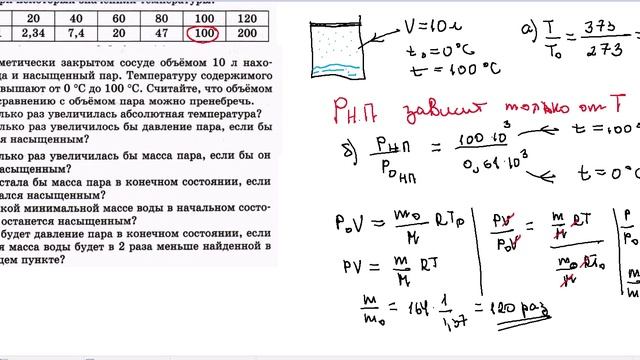 20 40 60 80 100 120
2,34 7,4 20 47 100 200
метически закрытом сосуде объёмом 10 л нахо-
да и насыщенный пар. Температуру содержимого
вышают от 0 °С до 100 °С. Считайте, что объёмом
сравнению с объёмом пара можно пренебречь.
лько раз увеличилась абсолютная температура?
лько раз увеличилось бы давление пара, если бы
ся насыщенным?
лько раз увеличилась бы масса пара, если бы он
насыщенным?
стала бы масса пара в конечном состоянии, если
ался насыщенным?
кой минимальной массе воды в начальном состо-
останется насыщенным?
будет давление пара в конечном состоянии, если
я масса воды будет в 2 раза меньше найденной в
щем пункте?
V=10 л
t₀=0°C
t=100°C
а) T/T₀ = 373/273 =
Pн.п зависит только от T
б) Pнп/P₀нп = 100·10³/0,61·10³
t=100°
t=0°C
P₀V = m₀/M RT₀
PV = m/M RT
PV/P₀V = m/M RT / m₀/M RT₀
m/m₀ = 164·1/1,37 = 120 раз